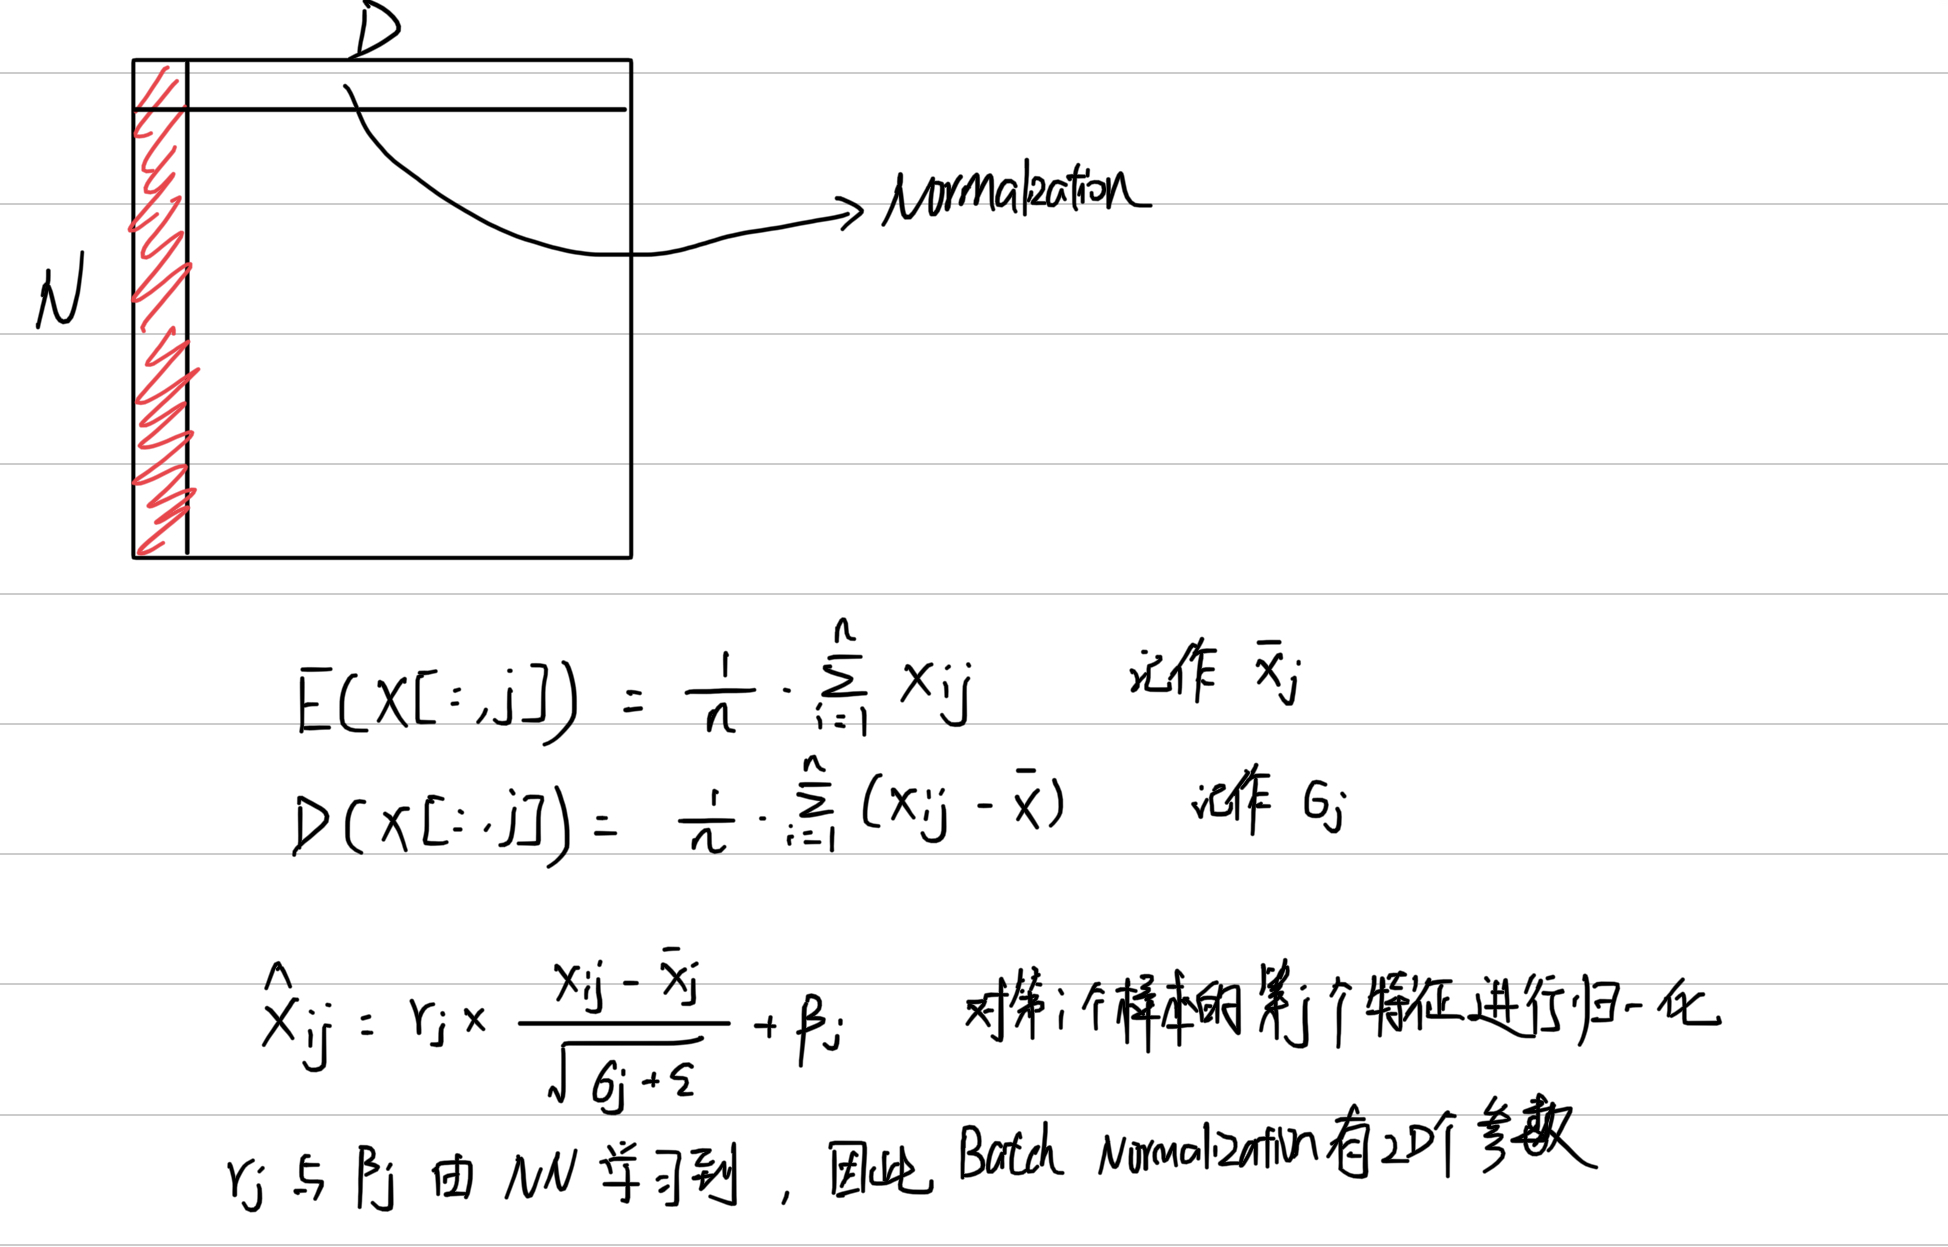 D
Normalzation
N
E(X[:,j]) = 1/n · Σ_{i=1}^{n} xij 记作 x̄j
D(X[:,j]) = 1/n · Σ_{i=1}^{n} (xij - x̄) 记作 σj
X̂ij = rj × (xij - x̄j)/√(σj + ε) + βj 对第i个样本的第j个特征进行归一化
rj与βj由NN学习到，因此 Batch Normalization有2D个参数